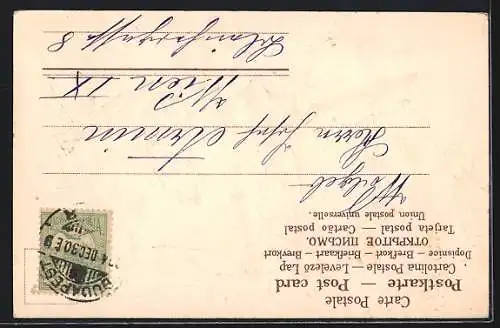 Carte Postale
Postkarte — Post card
Cartolina Postale — Levelező Lap
Dopisnice — Brefkort — Briefkaart — Brevkort
ОТКРЫТОЕ ПИСЬМО.
Tarjeta postal — Cartão postal
Union postale universelle.
Wohlgeb.
Herrn Josef Armin
Wien IX
8
BUDAPEST
DEC 30